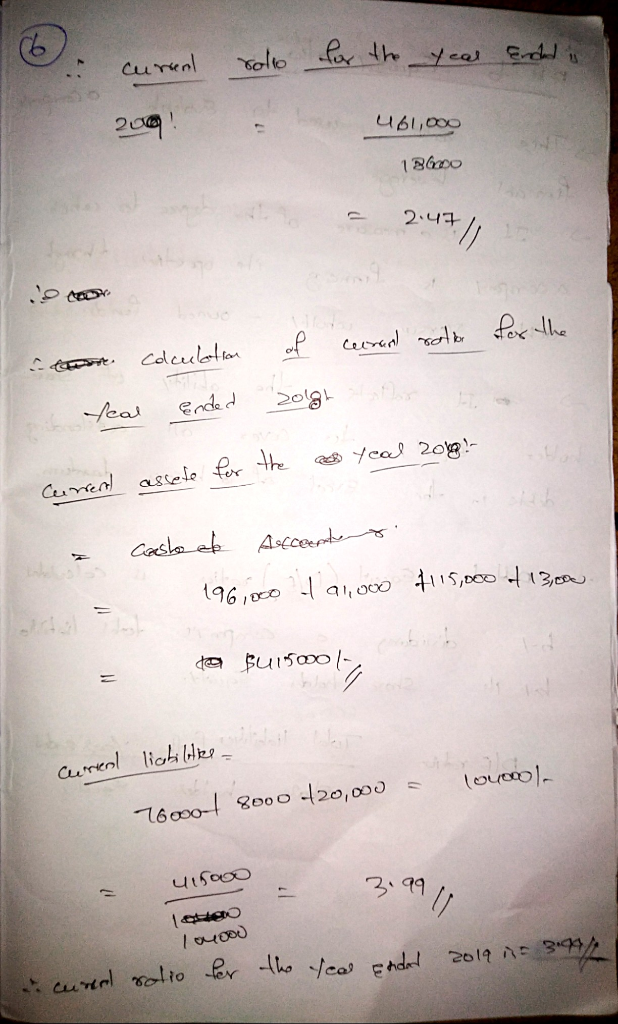 6
∴ current ratio for the year Ended is
2019! = 461,000
186000
= 2.47 //
∴ calculation of current ratio for the
Year Ended 2018:-
Current assets for the year 2018:-
= Cash at Accounts
= 196,000 + 91,000 + 115,000 + 13,000
= $415000/- //
Current liabilities =
76000 + 8000 + 20,000 = 104000/-
= 415000 = 3.99 //
104000
∴ current ratio for the Year Ended 2019 is = 3.99 //